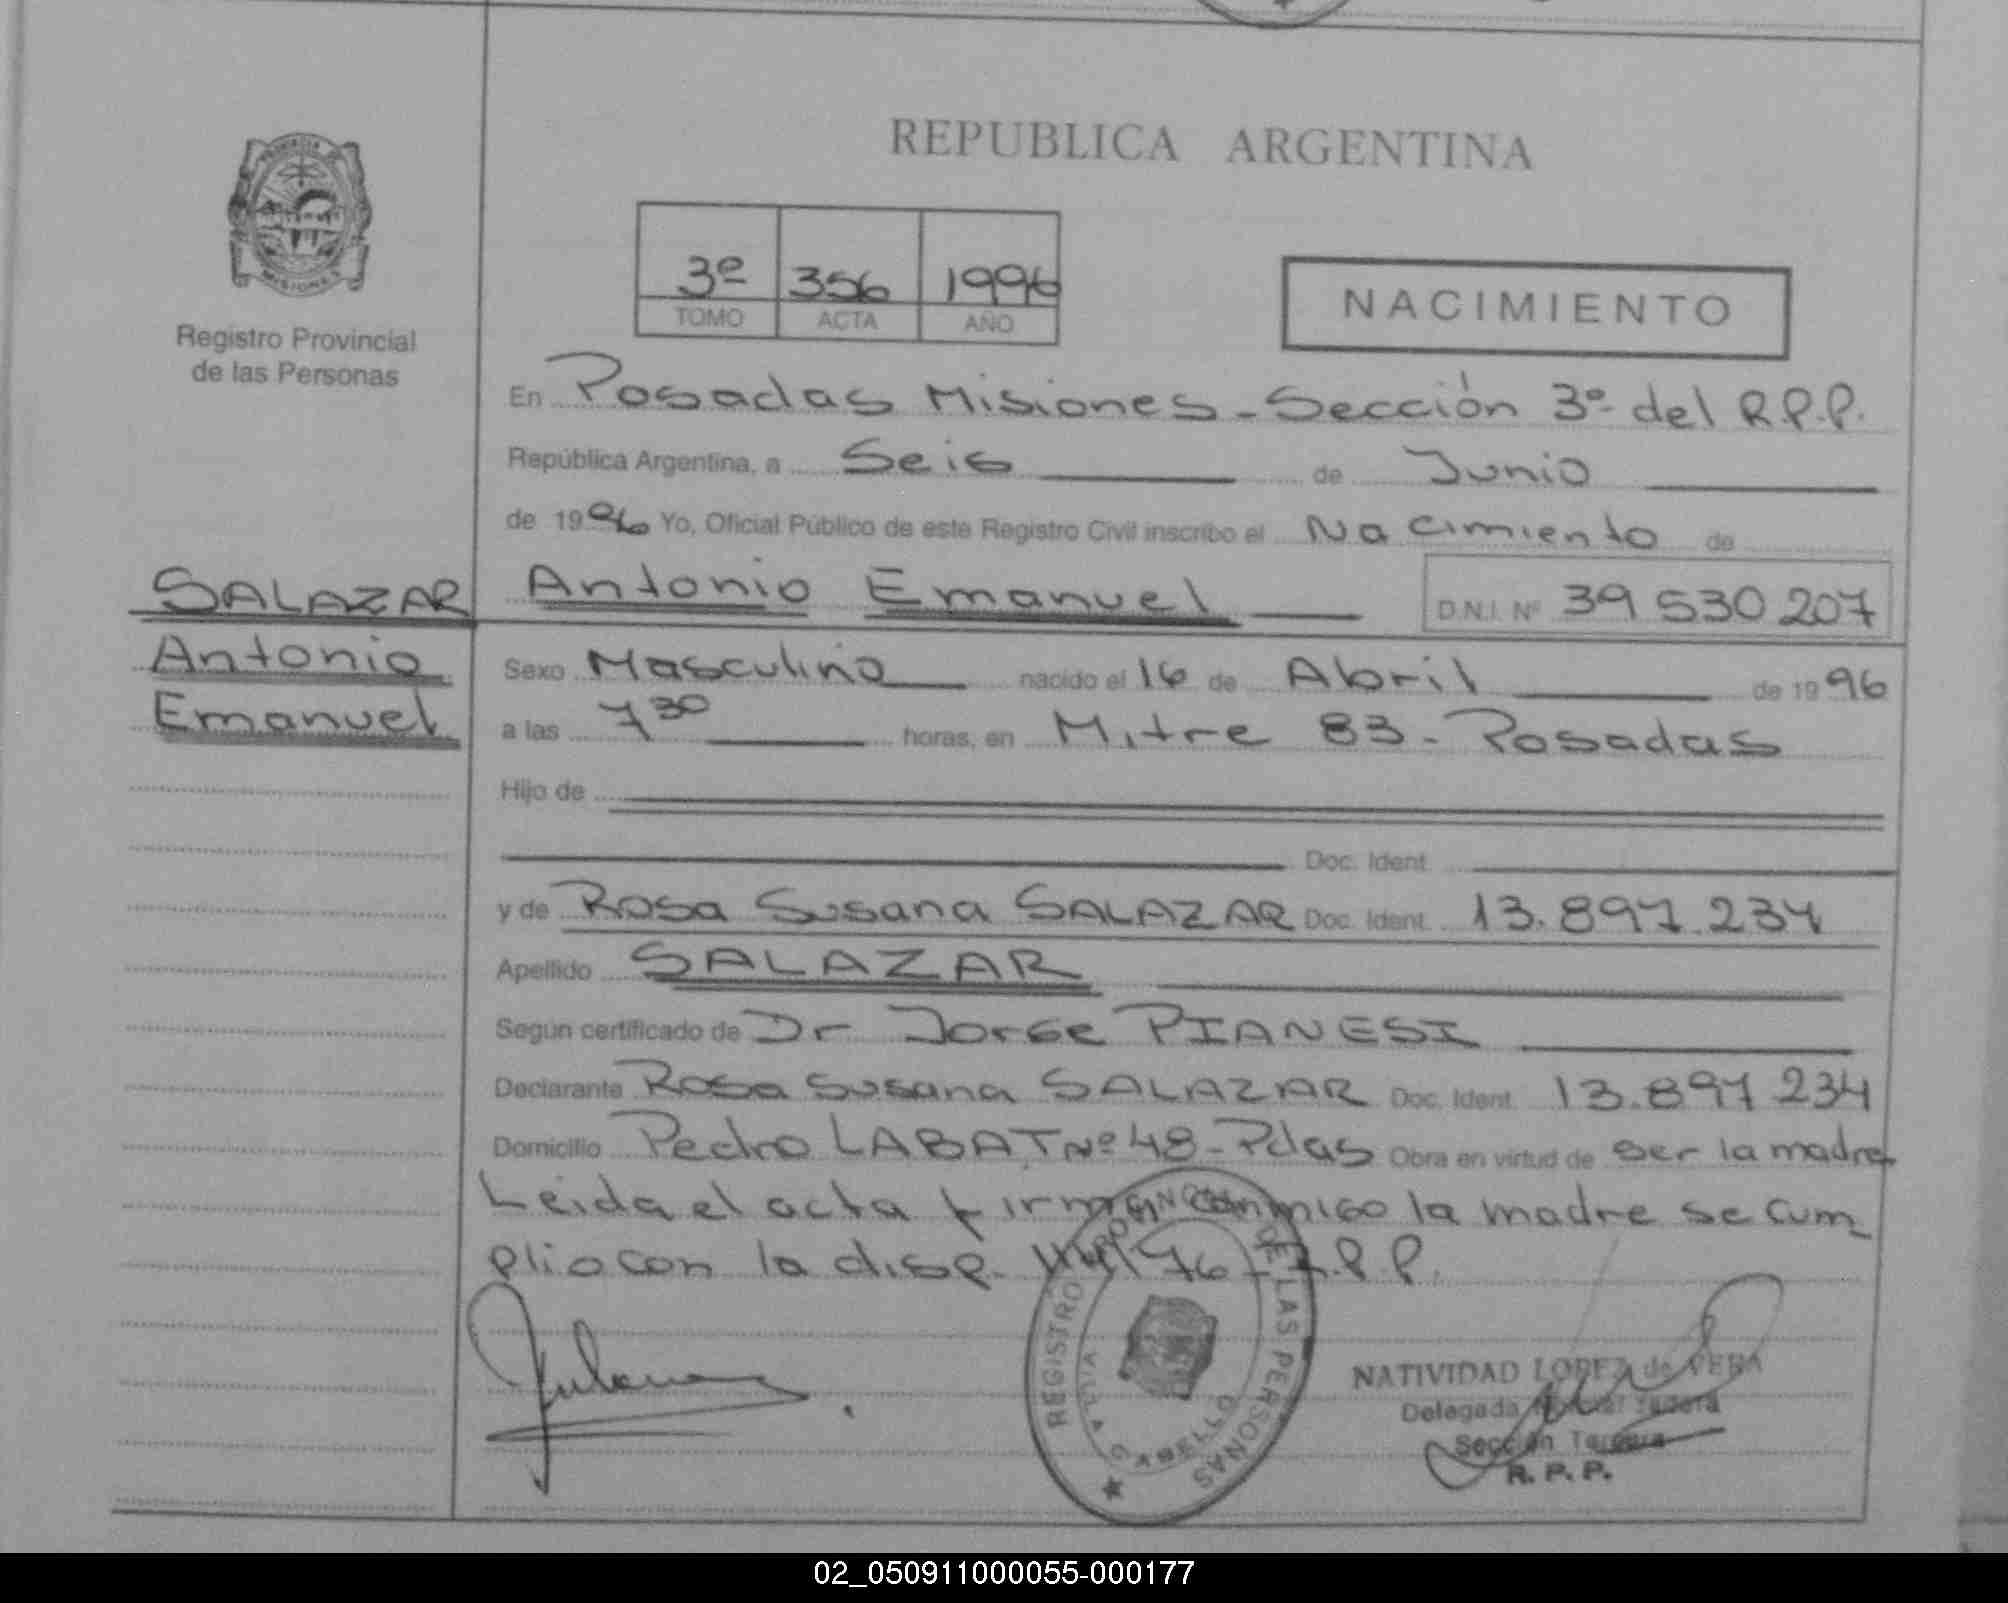 REPUBLICA ARGENTINA
PROVINCIA DE
MISIONES
Registro Provincial
de las Personas
3º 356 1996
TOMO ACTA AÑO
NACIMIENTO
En Posadas Misiones - Sección 3º del R.P.P.
República Argentina, a Seis de Junio
de 1996 Yo, Oficial Público de este Registro Civil inscribo el Nacimiento de
SALAZAR Antonio Emanuel D.N.I. Nº 39 530 207
Antonio
Emanuel
Sexo Masculino nacido el 16 de Abril de 1996
a las 7 30 horas, en Mitre 83 - Posadas
Hijo de
Doc. Ident.
y de Rosa Susana SALAZAR Doc. Ident. 13.897.234
Apellido SALAZAR
Según certificado de Dr Jorge PIANESI
Declarante Rosa Susana SALAZAR Doc. Ident. 13.897 234
Domicilio Pedro LABAT Nº 48 - Pdas Obra en virtud de ser la madre
Leida el acta firman conmigo la madre se cum
plio con la disp. /96 R.P.P.
REGISTRO PROVINCIAL DE LAS PERSONAS
NATIVIDAD LOPEZ de VERA
Delegada Titular
Sección Tercera
R. P. P.
02_050911000055-000177